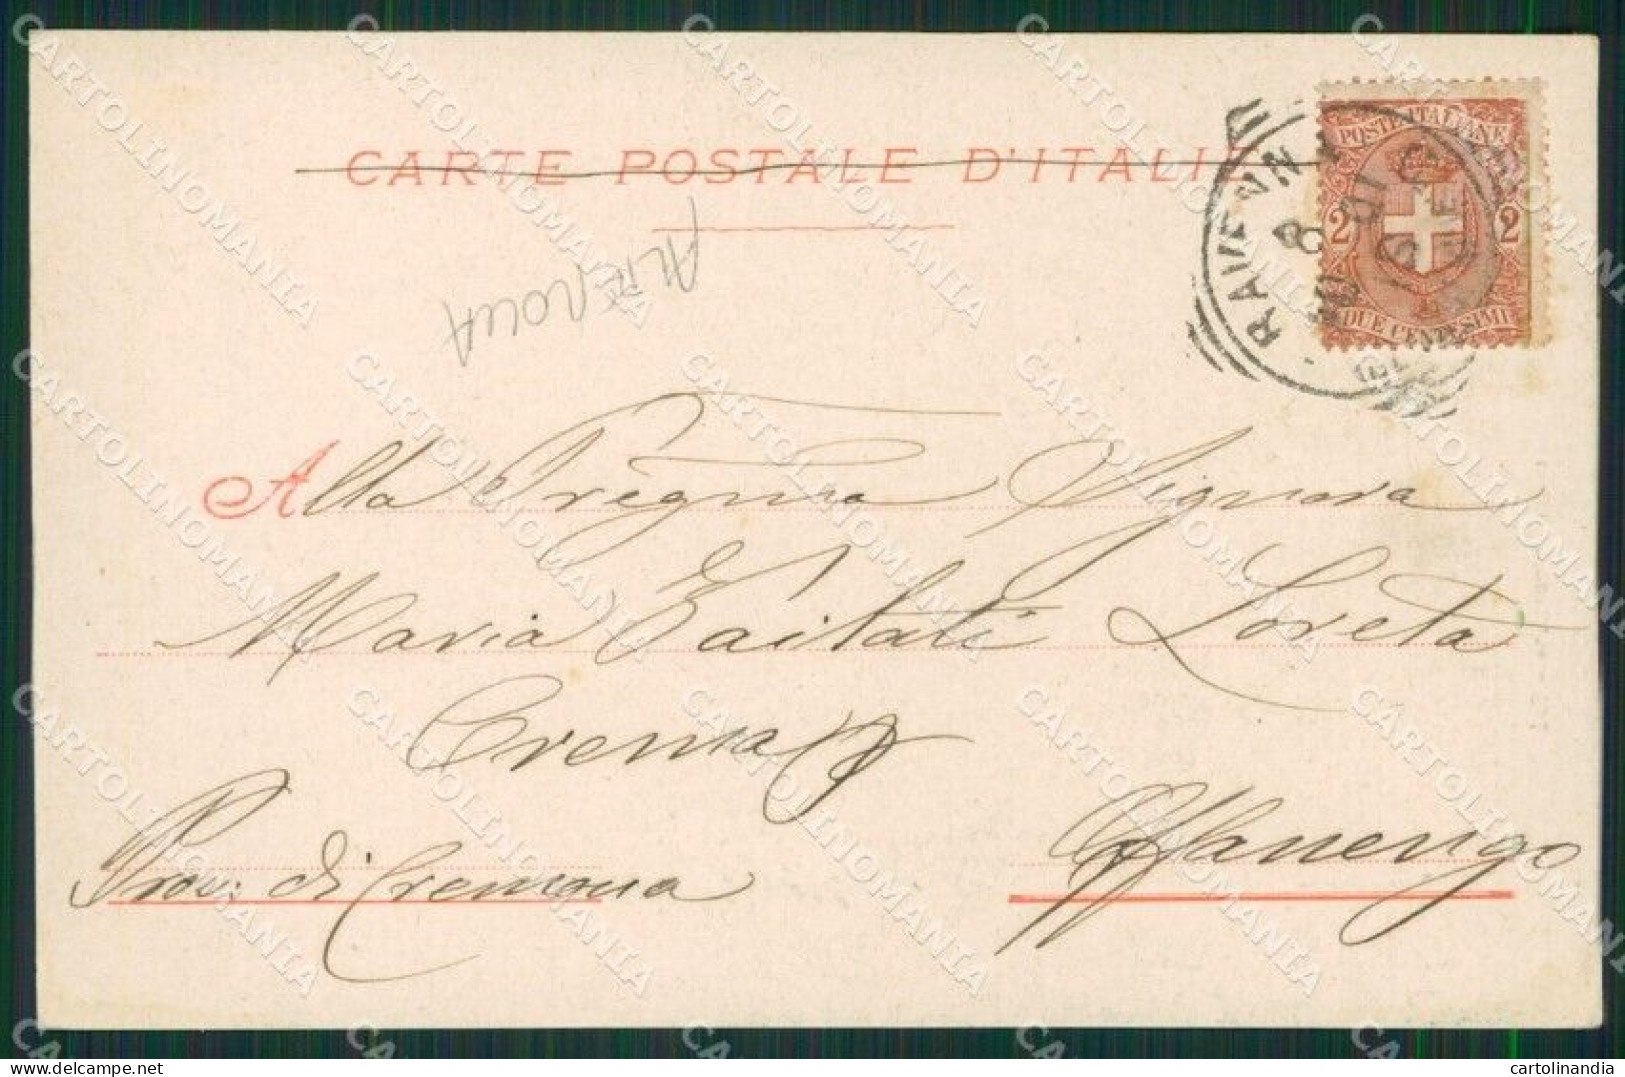 CARTE POSTALE D'ITALIE
POSTE ITALIANE
2 2
DUE CENTESIMI
RAVENNA
8
Alla Pregma Signora
Maria Loreta
Crema
Offanengo
Prov: di Cremona
CARTOLINOMANIA
cartolinandia